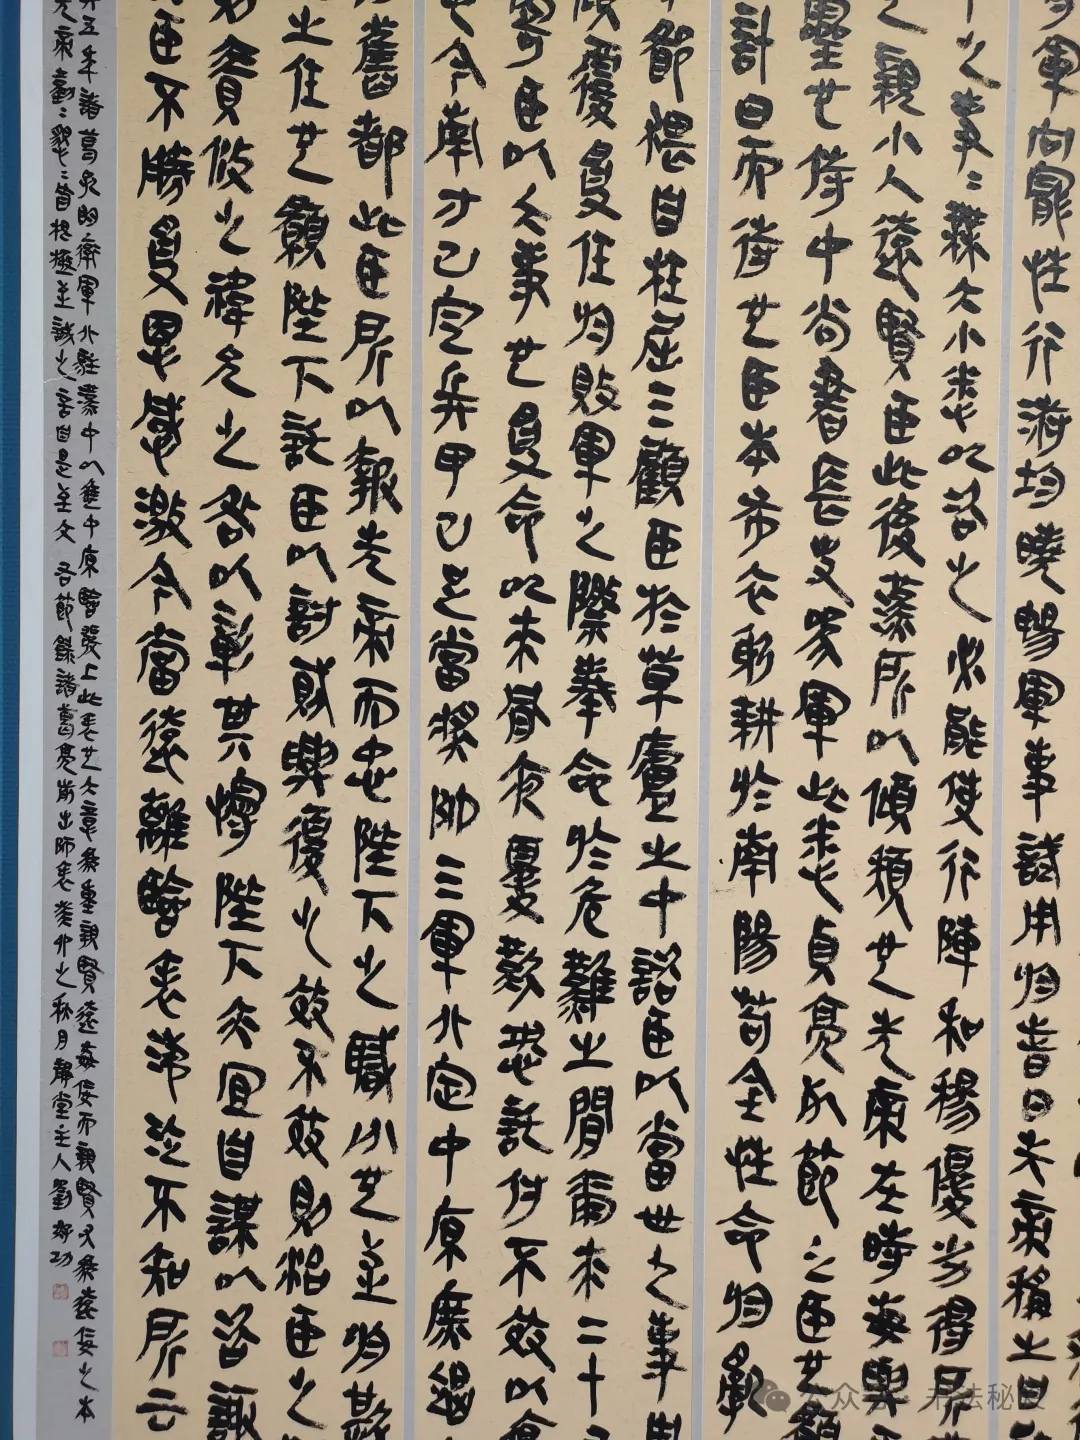 軍向寵性行淑均曉暢軍事試用於昔日先帝稱之曰
中之事〻無大小悉以咨之必能使行陣和穆優劣得所
之親小人遠賢臣此後漢所以傾頹也先帝在時每與
靈也侍中尚書長史參軍此悉貞亮死節之臣也願
計日而待也臣本布衣躬耕於南陽苟全性命於亂
鄙猥自枉屈三顧臣於草廬之中諮臣以當世之事由
傾覆受任於敗軍之際奉命於危難之間爾來二十
寄臣以大事也受命以來夙夜憂歎恐託付不效以傷
今南方已定兵甲已足當獎帥三軍北定中原庶竭
舊都此臣所以報先帝而忠陛下之職分也至於斟
之任也願陛下託臣以討賊興復之效不效則治臣之
責攸之禕允之咎以彰其慢陛下亦宜自謀以諮諏
臣不勝受恩感激今當遠離臨表涕泣不知所云
五年諸葛亮率軍北駐漢中以進中原臨發上此表也大意重親賢遠佞而親賢又為遠佞之本
先帝至誠之言自是至文 右節錄諸葛亮前出師表癸卯之秋月靜堂主人劉功
公众号